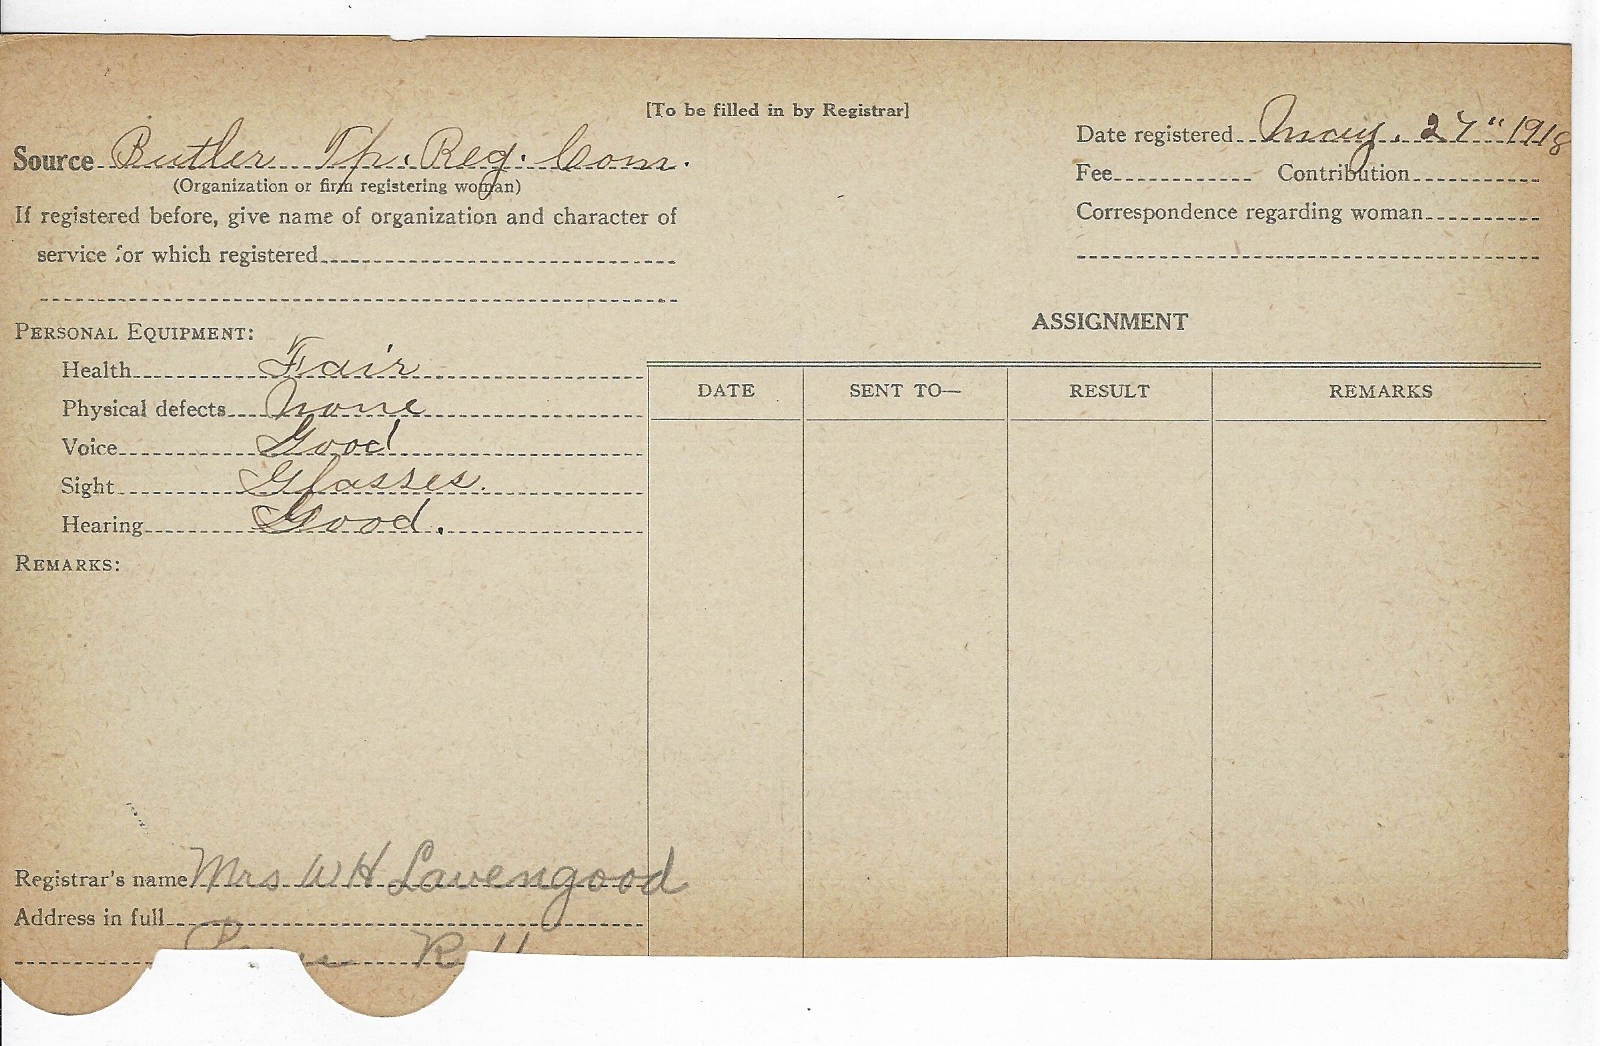 [To be filled in by Registrar]
Source Butler Tp. Reg. Com.
(Organization or firm registering woman)
If registered before, give name of organization and character of
service for which registered
Date registered May. 27" 1918
Fee Contribution
Correspondence regarding woman
PERSONAL EQUIPMENT:
Health Fair
Physical defects None
Voice Good
Sight Glasses.
Hearing Good.
REMARKS:
ASSIGNMENT
DATE SENT TO— RESULT REMARKS
Registrar's name Mrs W H Lavengood
Address in full
R